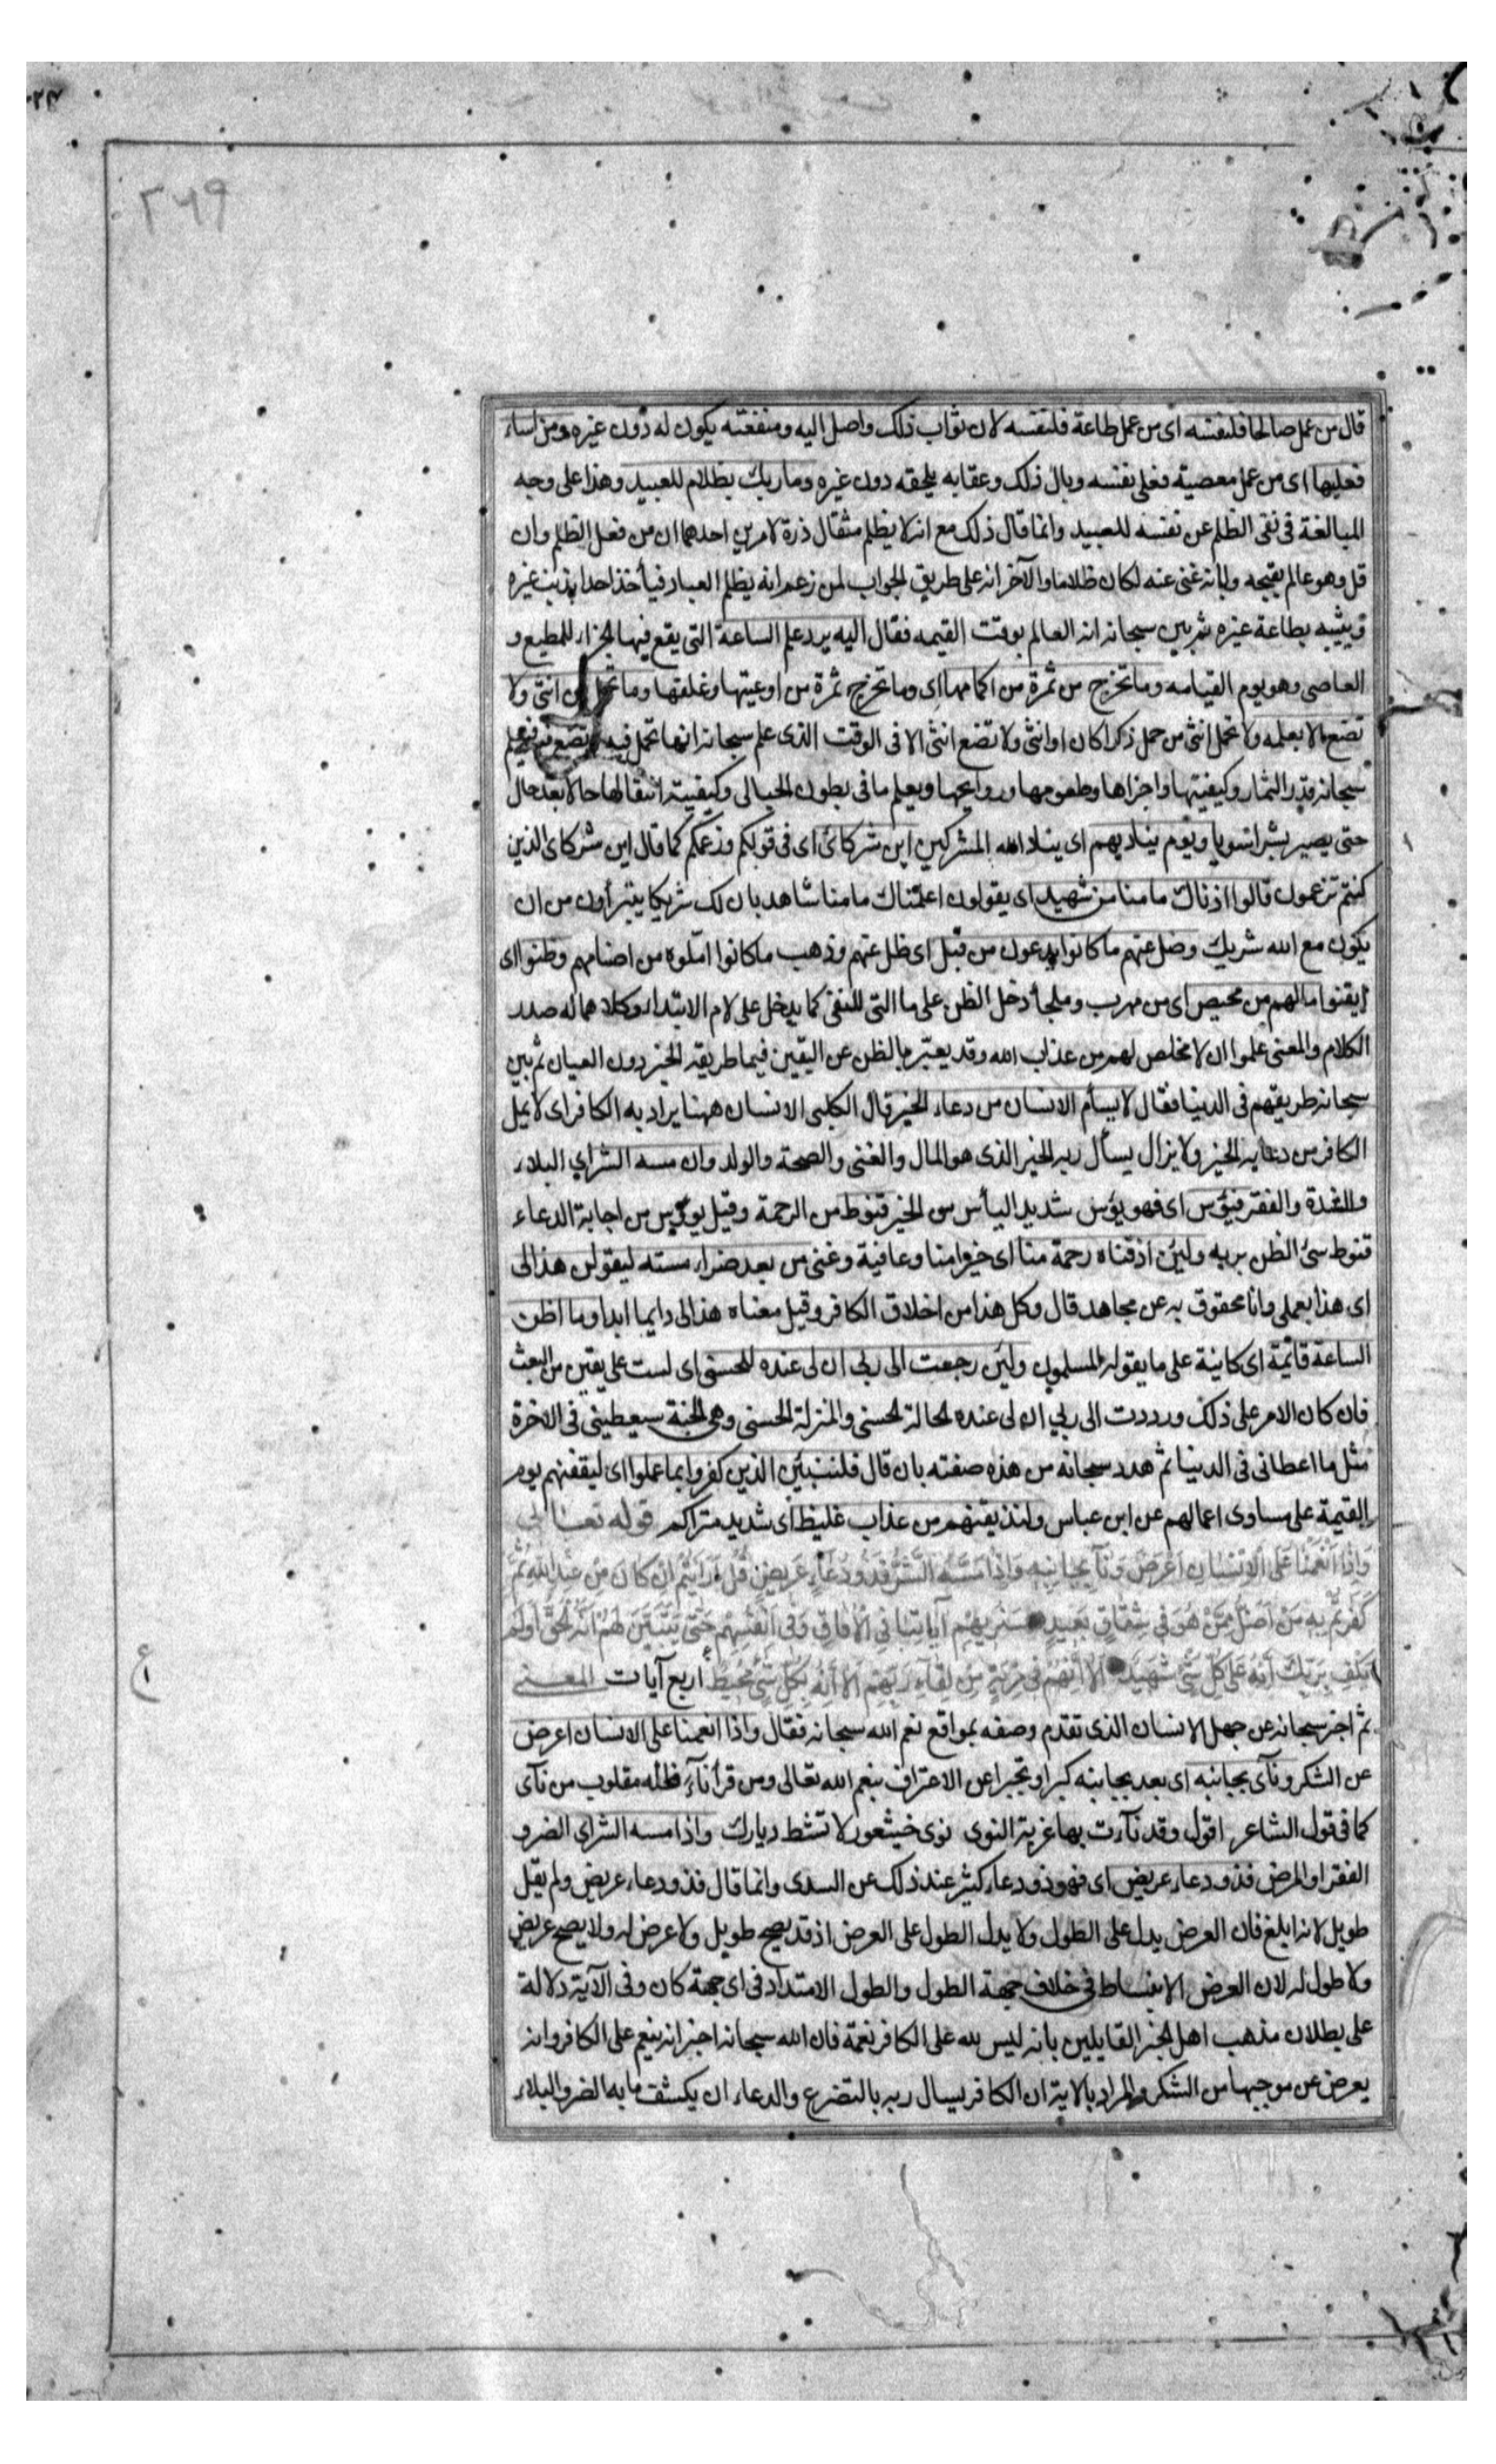 ٢٦٩
قال من عمل صالحا فلنفسه اى من عمل طاعة فلنفسه لان ثواب ذلك واصل اليه ومنفعته يكون له دون غيره ومن اساء
فعليها اى من عمل معصية فعلى نفسه وبال ذلك وعقابه يلحقه دون غيره وما ربك بظلام للعبيد وهذا على وجه
المبالغة فى نفى الظلم عن نفسه للعبيد وانما قال ذلك مع انه لا يظلم مثقال ذرة لامرين احدهما ان من فعل الظلم وان
قل وهو عالم بقبحه وبانه غنى عنه لكان ظلاما والآخر انه على طريق الجواب لمن زعم انه يظلم العباد فيأخذ احدا بذنب غيره
ويثيبه بطاعة غيره ثم بين سبحانه انه العالم بوقت القيمه فقال اليه يرد علم الساعة التى يقع فيها الجزاء للمطيع و
العاصى وهو يوم القيامه وما تخرج من ثمرة من اكمامها اى وما تخرج ثمرة من اوعيتها وغلفها وما تحمل من انثى ولا
تضع الا بعلمه ولا تحمل انثى من حمل ذكرا كان او انثى ولا تضع انثى الا فى الوقت الذى علم سبحانه انها تحمل فيه وتضع فيه فيعلم
سبحانه قدر الثمار وكيفيتها واجزاها وطعومها وروايحها ويعلم ما فى بطون الحبالى وكيفية انتقالها حالا بعد حال
حتى يصير بشرا سويا ويوم يناديهم اى ينادى الله المشركين اين شركائى اى فى قولكم وزعمكم كما قال اين شركاى الذين
كنتم تزعمون قالوا اذناك ما منا من شهيد اى يقولون اعلمناك ما منا شاهد بان لك شريكا يتبرأون من ان
يكون مع الله شريك وضل عنهم ما كانوا يدعون من قبل اى ظل عنهم وذهب ما كانوا املوه من اصنامهم وظنوا اى
ايقنوا مالهم من محيص اى من مهرب وملجأ دخل الظن على ما التى للنفى كما يدخل على لام الابتداء وكلاهما له صدر
الكلام والمعنى علموا ان لا مخلص لهم من عذاب الله وقد يعبر بالظن عن اليقين فيما طريقه الخبر دون العيان ثم بين
سبحانه طريقهم فى الدنيا فقال لا يسأم الانسان من دعاء الخير قال الكلبى الانسان ههنا يراد به الكافر اى لا يمل
الكافر من دعايه الخير ولا يزال يسأل ربه الخير الذى هو المال والغنى والصحة والولد وان مسه الشر اى البلاء
والشدة والفقر فيؤس اى فهو يؤس شديد اليأس من الخير قنوط من الرحمة وقيل يؤس من اجابة الدعاء
قنوط سئ الظن بربه ولين اذقناه رحمة منا اى خيرا منا وعافية وغنى من بعد ضراء مسته ليقولن هذا لى
اى هذا بعملى وانا محقوق به عن مجاهد قال وكل هذا من اخلاق الكافر وقيل معناه هذا لى دايما ابدا وما اظن
الساعة قائمة اى كاينة على ما يقوله المسلمون ولين رجعت الى ربى ان لى عنده للحسنى اى لست على يقين من البعث
فان كان الامر على ذلك ورددت الى ربى ان لى عنده لحالة الحسنى والمنزلة الحسنى وهى الجنة سيعطينى فى الاخرة
مثل ما اعطانى فى الدنيا ثم هدد سبحانه من هذه صفته بان قال فلننبئن الذين كفروا بما عملوا اى ليقفنهم يوم
القيمة على مساوى اعمالهم عن ابن عباس ولنذيقنهم من عذاب غليظ اى شديد متراكم قوله تعالى
وَاِذَا اَنْعَمْنَا عَلَى الْاِنْسَانِ اَعْرَضَ وَنَآ بِجَانِبِهِ وَاِذَا مَسَّهُ الشَّرُّ فَذُو دُعَآءٍ عَرِيضٍ قُلْ اَرَاَيْتُمْ اِنْ كَانَ مِنْ عِنْدِ اللهِ ثُمَّ
كَفَرْتُمْ بِهِ مَنْ اَضَلُّ مِمَّنْ هُوَ فِى شِقَاقٍ بَعِيدٍ سَنُرِيهِمْ آيَاتِنَا فِى الْآفَاقِ وَفِى اَنْفُسِهِمْ حَتّى يَتَبَيَّنَ لَهُمْ اَنَّهُ الْحَقُّ اَوَلَمْ
يَكْفِ بِرَبِّكَ اَنَّهُ عَلَى كُلِّ شَىْءٍ شَهِيدٌ اَلَا اِنَّهُمْ فِى مِرْيَةٍ مِنْ لِقَآءِ رَبِّهِمْ اَلَا اِنَّهُ بِكُلِّ شَىْءٍ مُحِيطٌ اربع آيات المعنى
ثم اخبر سبحانه عن جهل الانسان الذى تقدم وصفه بمواقع نعم الله سبحانه فقال واذا انعمنا على الانسان اعرض
عن الشكر ونآى بجانبه اى بعد بجانبه كبرا وتجبرا عن الاعتراف بنعم الله تعالى ومن قرأ نآء فانه مقلوب من نآى
كما فى قول الشاعر اقول وقد نآءت بها غربة النوى نوى خيثعور لا تشط ديارك واذا مسه الشر اى الضر و
الفقر او المرض فذو دعاء عريض اى فهو ذو دعاء كثير عند ذلك عن السدى وانما قال فذو دعاء عريض ولم يقل
طويل لانه ابلغ فان العرض يدل على الطول ولا يدل الطول على العرض اذ قد يصح طويل ولا عرض له ولا يصح عريض
ولا طول له لان العرض الانبساط فى خلاف جهة الطول والطول الامتداد فى اى جهة كان وفى الآية دلالة
على بطلان مذهب اهل الجبر القايلين بانه ليس لله على الكافر نعمة فان الله سبحانه اخبر انه ينعم على الكافر وانه
يعرض عن موجبها من الشكر والمراد بالاية ان الكافر يسال ربه بالتضرع والدعاء ان يكشف ما به الضر والبلاء